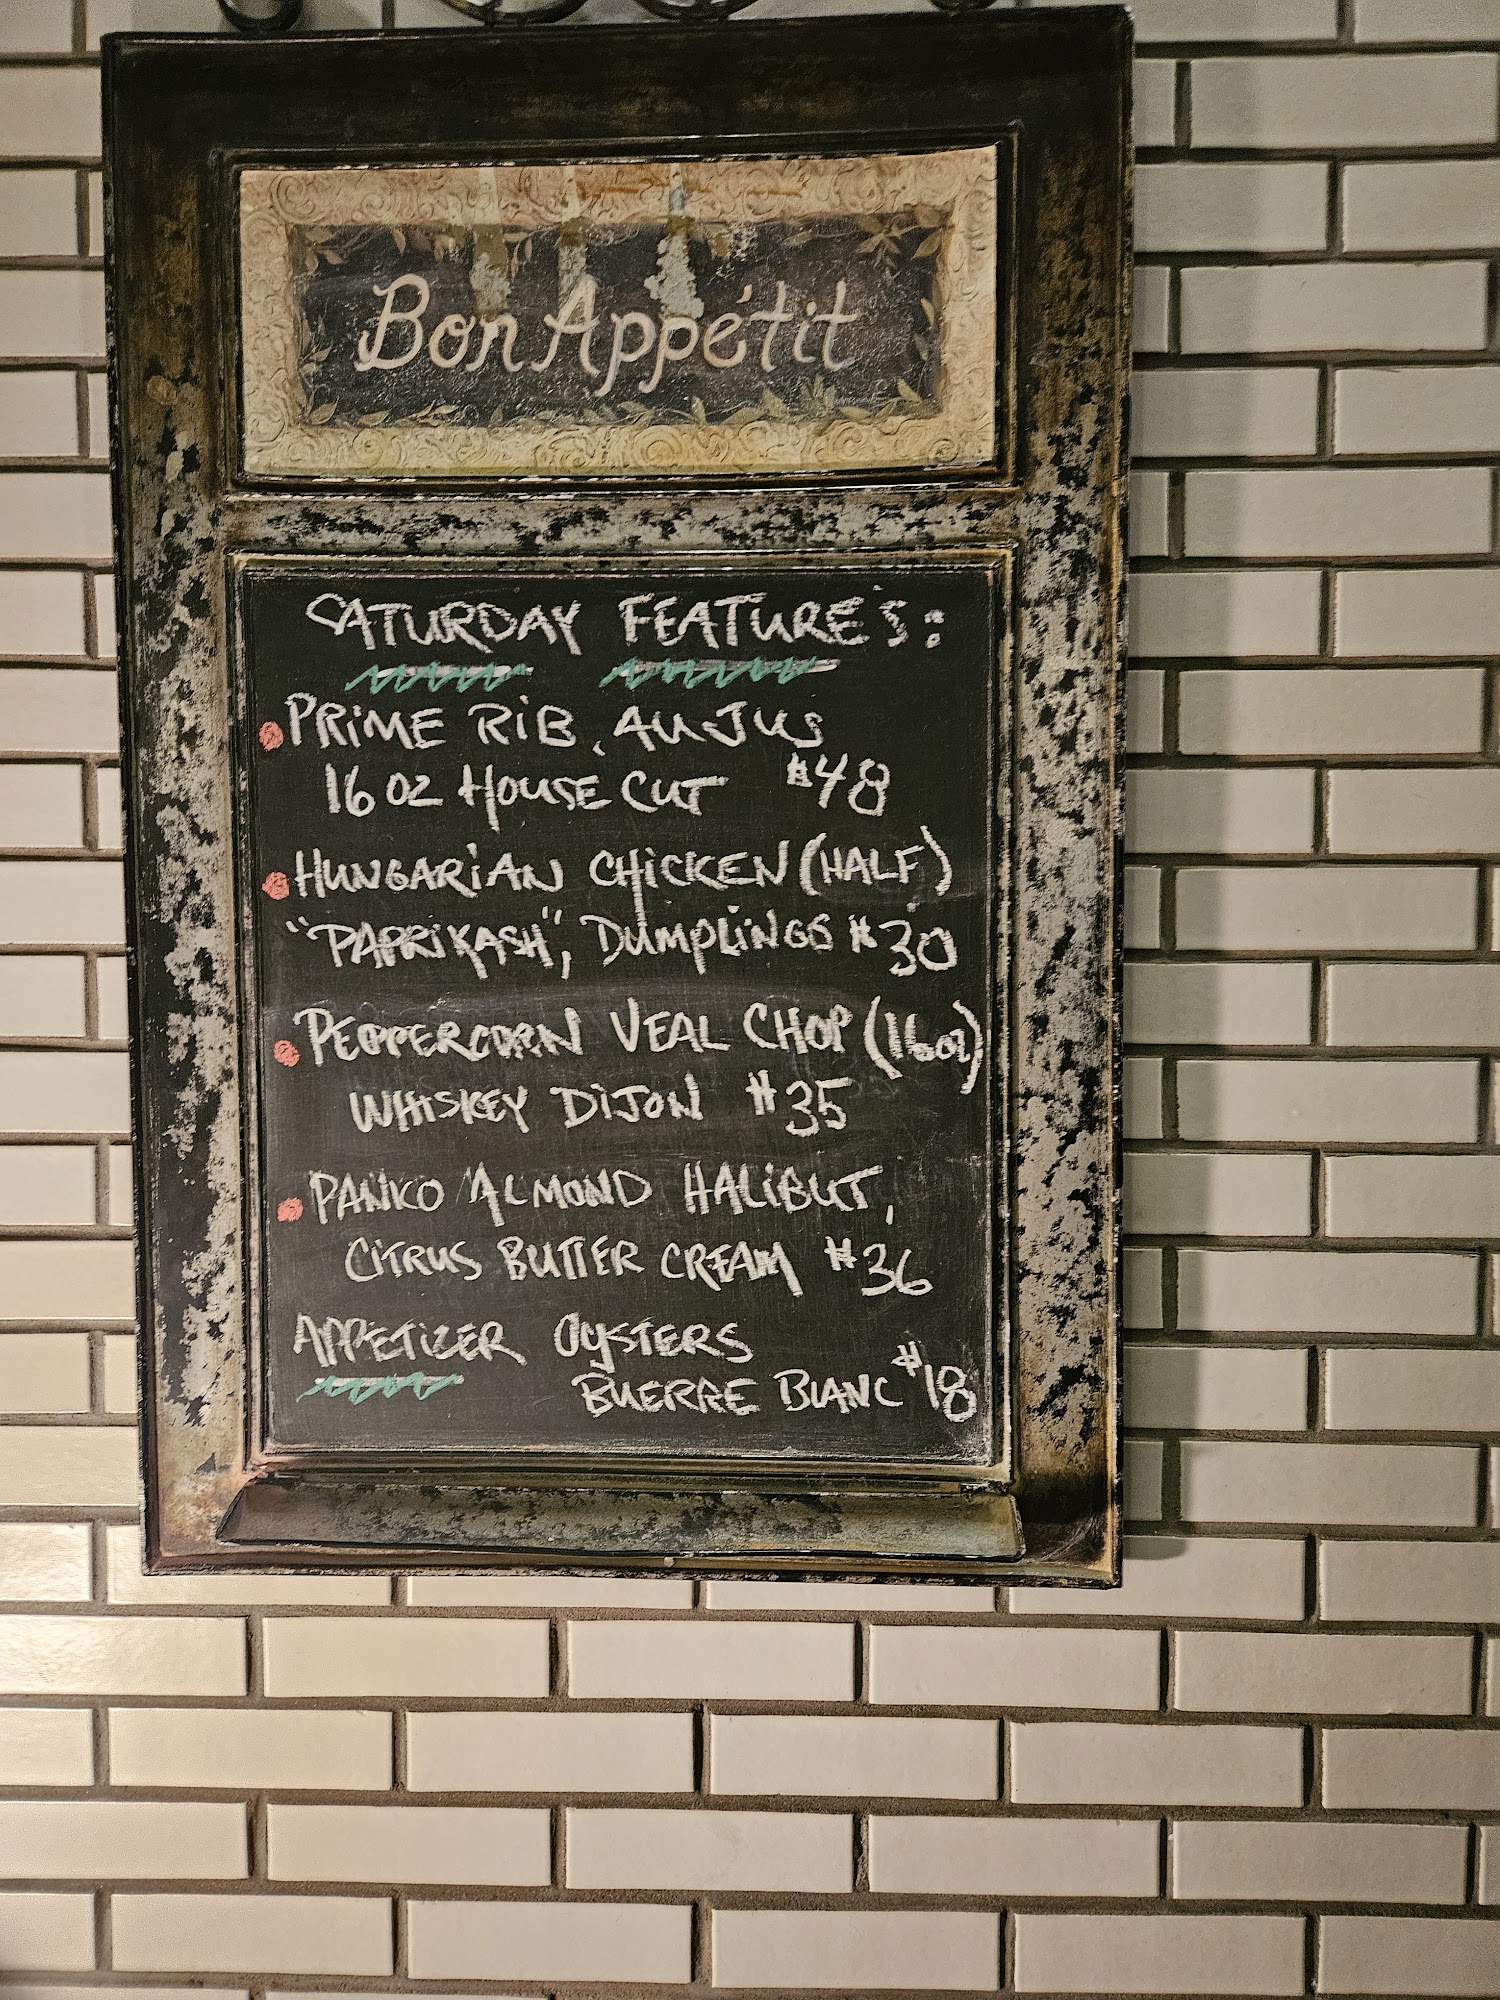 Bon Appétit
SATURDAY FEATURE'S:
PRIME RIB, AU JUS
16 OZ HOUSE CUT $48
HUNGARIAN CHICKEN (HALF)
"PAPRIKASH", DUMPLINGS $30
PEPPERCORN VEAL CHOP (16oz)
WHISKEY DIJON $35
PANKO ALMOND HALIBUT,
CITRUS BUTTER CREAM $36
APPETIZER OYSTERS
BUERRE BLANC $18